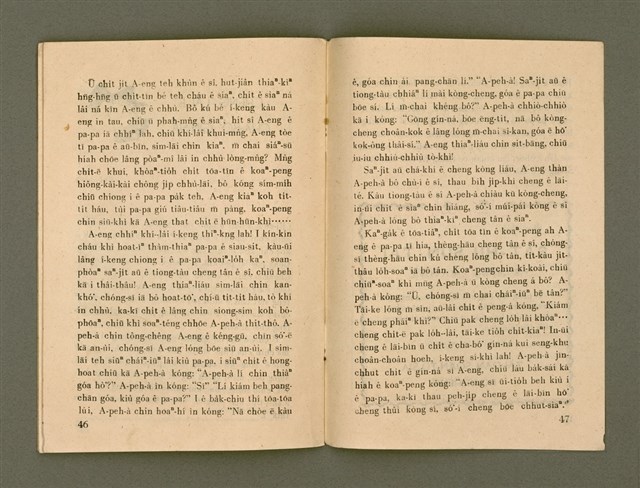 Ū chi̍t ji̍t A-eng teh khùn ê sî, hut-jiân thiaⁿ-kìⁿ
hn̄g-hn̄g ū chi̍t-tīn bé teh cháu ê siaⁿ, chit ê siaⁿ ná
lâi ná kīn A-eng ê chhù. Bô kú bé í-keng kàu A-
eng in tau, chiū ū phah-mn̂g ê siaⁿ, hit sî A-eng ê
pa-pa iā chhíⁿ lah, chiū khí-lâi khui-mn̂g, A-eng tòe
tī pa-pa ê āu-bīn, sim-lāi chin kiaⁿ. m̄ chai siáⁿ-sū
hiah chōe lâng pòaⁿ-mî lâi in chhù lóng-mn̂g? Mn̂g
chi̍t-ê khui, khòaⁿ-tio̍h chi̍t tōa-tīn ê koaⁿ-peng
hiông-kài-kài chông ji̍p chhù-lāi, bô kóng sím-mih
chiū chiong i ê pa-pa pa̍k teh, A-eng kiaⁿ koh tit-
tit háu, túi pa-pa giú tiâu-tiâu m̄ pàng, koaⁿ-peng
chin siū-khì kā A-eng that chi̍t ê hūn-hūn-khì······
A-eng chhíⁿ khí-lâi í-keng thiⁿ-kng lah! I kín-kín
cháu khì hoat-īⁿ thàm-thiaⁿ pa-pa ê siau-sit, káu-ūi
lâng í-keng chiong i ê pa-pa koaiⁿ-lo̍h kaⁿ, soan-
phòaⁿ saⁿ-ji̍t aū ê tiong-tàu cheng tân ê sî, chiū beh
kā i thâi-thâu! A-eng thiaⁿ-liáu sim-lāi chin kan-
khó͘, chóng-sī iā bô hoat-tō͘, chí-ū tit-tit háu, tó khì
in chhù, ka-kī chi̍t ê lâng chin siong-sim koh bô-
phōaⁿ, chiū khì soaⁿ-téng chhōe A-peh-á thit-thô. A-
peh-á chin tông-chêng A-eng ê kéng-gū, chin só͘-ê
kā an-ùi, chóng-sī A-eng lóng bōe siū an-ùi. I sim-
lāi teh siūⁿ cháiⁿ-iūⁿ lâi kiù pa-pa, i siūⁿ chi̍t ê hong-
hoat chiū kā A-peh-á kóng: "A-peh-á lí chin thiàⁿ
góa hô͘?" A-peh-á ìn kóng: "Sī" "Lí kiám beh pang-
chān góa, kiù góa ê pa-pa?" I ê ba̍k-chiu thí tōa-tōa
lúi, A-peh-á chin hoaⁿ-hí ìn kóng: "Nā chòe ē kàu
46
ê, góa chin ài pang-chān lí." "A-peh-á! Saⁿ-ji̍t aū ê
tiong-tàu chhiáⁿ lí mài kòng-cheng, góa ê pa-pa chiū
bōe sí. Lí m̄-chai khéng bô?" A-peh-á chhiò-chhiò
kā i kóng: "Gōng gín-ná, bōe eng-tit, nā bô kòng-
cheng choân-kok ê lâng lóng m̄-chai sî-kan, góa ē hō͘
kok-ông thâi-sí." A-eng thiaⁿ-liáu chin sit-bāng, chiū
iu-iu chhiù-chhiù tò-khì!
Saⁿ-ji̍t aū chá-khí ê cheng kòng liáu, A-eng thàn
A-peh-á bô chù-ì ê sî, thau bih ji̍p-khì cheng ê lāi-
té. Kàu tiong-tàu ê sî A-peh-á chiàu kū kòng-cheng,
in-ūi chi̍t ê siaⁿ chin hiáng, só͘-í múi-pái kòng ê sî
A-peh-á lóng bô thiaⁿ-kìⁿ cheng tân ê siaⁿ.
Kaⁿ-ga̍k ê tōa-tiâⁿ, chi̍t tōa tīn ê koaⁿ-peng ah A-
eng ê pa-pa tī hia, thèng-hāu cheng tân ê sî, chóng-
sī thèng-hāu chin kú cheng lóng bô tân, tit-kàu ji̍t-
thâu lo̍h-soaⁿ iā bô tân. Koaⁿ-peng chin kî-koài, chiū
chiūⁿ-soaⁿ khì mn̄g A-peh-á ū kòng cheng á bô? A-
peh-á kóng: "Ū, chóng-sī m̄ chai cháiⁿ-iūⁿ bē tân?"
Tāi-ke lóng m̄ sìn, aū-lâi chi̍t ê peng kóng, "Kiám
ê cheng pháiⁿ khì?" Chiū pak cheng lo̍h-lâi khòaⁿ···
cheng chi̍t-ê pak lo̍h-lâi, tāi-ke tio̍h chi̍t-kiaⁿ! In-ūi
cheng ê lāi-bīn ū chi̍t ê cha-bó͘ gín-ná kui seng-khu
choân-choân hoeh, í-keng sí-khì lah! A-peh-á jīn-
chhut chi̍t ê gín-ná sī A-eng, chiū lâu ba̍k-sái kā
hiah ê koaⁿ-peng kóng: "A-eng sī ūi-tio̍h beh kiù i
ê pa-pa, ka-kī thau peh-ji̍p cheng ê lāi-bīn hō͘
cheng thûi kòng sí, só͘-í cheng bōe chhut-siaⁿ."
47